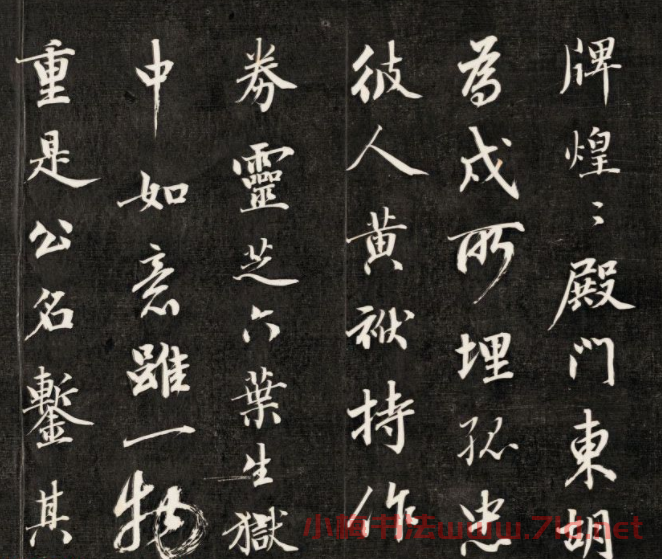 牌煌〻殿門東胡
為戍所埋孤忠
彼人黄袱持作
券靈芝六葉生獄
中如意雖一物
重是公名鏨其
书法www.7ld.net